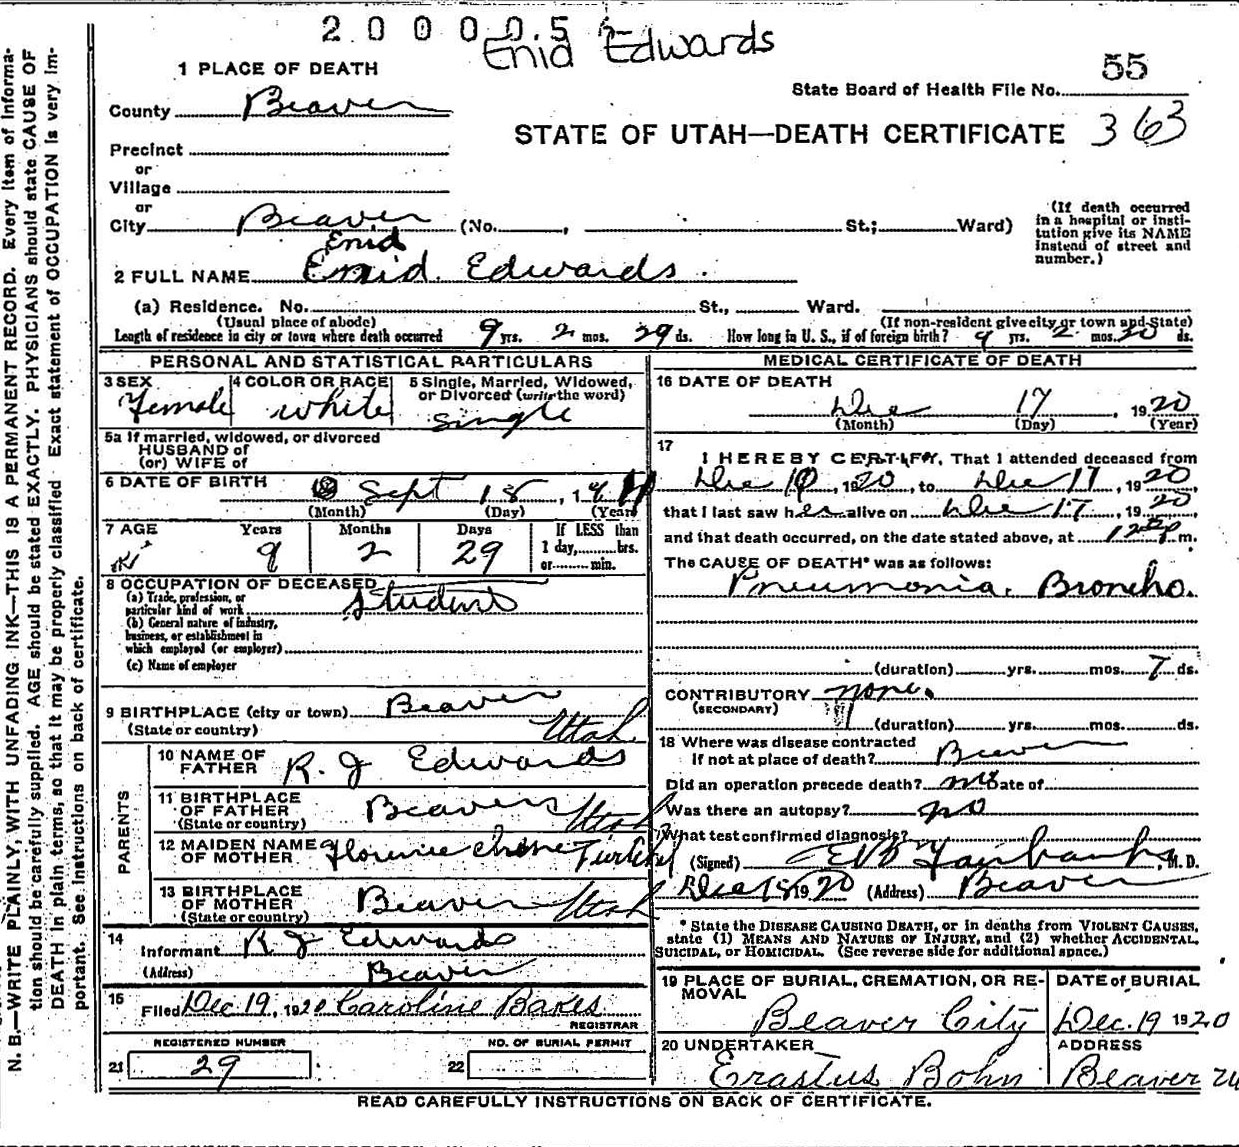 2 0 0 0 0 5
Enid Edwards
1 PLACE OF DEATH
55
State Board of Health File No.
County Beaver
STATE OF UTAH—DEATH CERTIFICATE 363
Precinct
or
Village
or
City Beaver (No. , St.; Ward)
(If death occurred in a hospital or insti-
tution give its NAME
instead of street and
number.)
Enid
2 FULL NAME Enid Edwards.
(a) Residence. No. St., Ward.
(Usual place of abode) (If non-resident give city or town and State)
Length of residence in city or town where death occurred 9 yrs. 2 mos. 29 ds. How long in U. S., if of foreign birth? 9 yrs. 2 mos. ds.
PERSONAL AND STATISTICAL PARTICULARS
3 SEX
Female
4 COLOR OR RACE
white
5 Single, Married, Widowed,
or Divorced (write the word)
single
5a If married, widowed, or divorced
HUSBAND of
(or) WIFE of
6 DATE OF BIRTH
Sept 18, 19
(Month) (Day) (Year)
7 AGE Years Months Days If LESS than
9 2 29 1 day, hrs.
or min.
8 OCCUPATION OF DECEASED
(a) Trade, profession, or
particular kind of work Student
(b) General nature of industry,
business, or establishment in
which employed (or employer)
(c) Name of employer
9 BIRTHPLACE (city or town) Beaver
(State or country) Utah
PARENTS
10 NAME OF
FATHER R. J Edwards
11 BIRTHPLACE
OF FATHER Beaver
(State or country) Utah
12 MAIDEN NAME
OF MOTHER Florence
13 BIRTHPLACE
OF MOTHER Beaver
(State or country) Utah
14
Informant R J Edwards
(Address) Beaver
15
Filed Dec 19, 1920 Caroline Bakes
REGISTRAR
REGISTERED NUMBER
21 29
NO. OF BURIAL PERMIT
22
MEDICAL CERTIFICATE OF DEATH
16 DATE OF DEATH
Dec 17, 1920
(Month) (Day) (Year)
17
I HEREBY CERTIFY, That I attended deceased from
Dec 10, 1920, to Dec 17, 1920
that I last saw her alive on Dec 17, 1920,
and that death occurred, on the date stated above, at m.
The CAUSE OF DEATH* was as follows:
Pneumonia, Broncho.
(duration) yrs. mos. 7 ds.
CONTRIBUTORY none.
(SECONDARY)
(duration) yrs. mos. ds.
18 Where was disease contracted
If not at place of death? Beaver
Did an operation precede death? no Date of
Was there an autopsy? no
What test confirmed diagnosis?
(Signed) Fairbanks, M. D.
Dec 18, 1920 (Address) Beaver
* State the DISEASE CAUSING DEATH, or in deaths from VIOLENT CAUSES,
state (1) MEANS AND NATURE OF INJURY, and (2) whether ACCIDENTAL,
SUICIDAL, or HOMICIDAL. (See reverse side for additional space.)
19 PLACE OF BURIAL, CREMATION, OR RE-
MOVAL
Beaver City
DATE of BURIAL
Dec. 19 1920
20 UNDERTAKER
Erastus Bohn
ADDRESS
Beaver
READ CAREFULLY INSTRUCTIONS ON BACK OF CERTIFICATE.
N. B.—WRITE PLAINLY, WITH UNFADING INK—THIS IS A PERMANENT RECORD. Every item of informa-
tion should be carefully supplied. AGE should be stated EXACTLY. PHYSICIANS should state CAUSE OF
DEATH in plain terms, so that it may be properly classified. Exact statement of OCCUPATION is very im-
portant. See instructions on back of certificate.